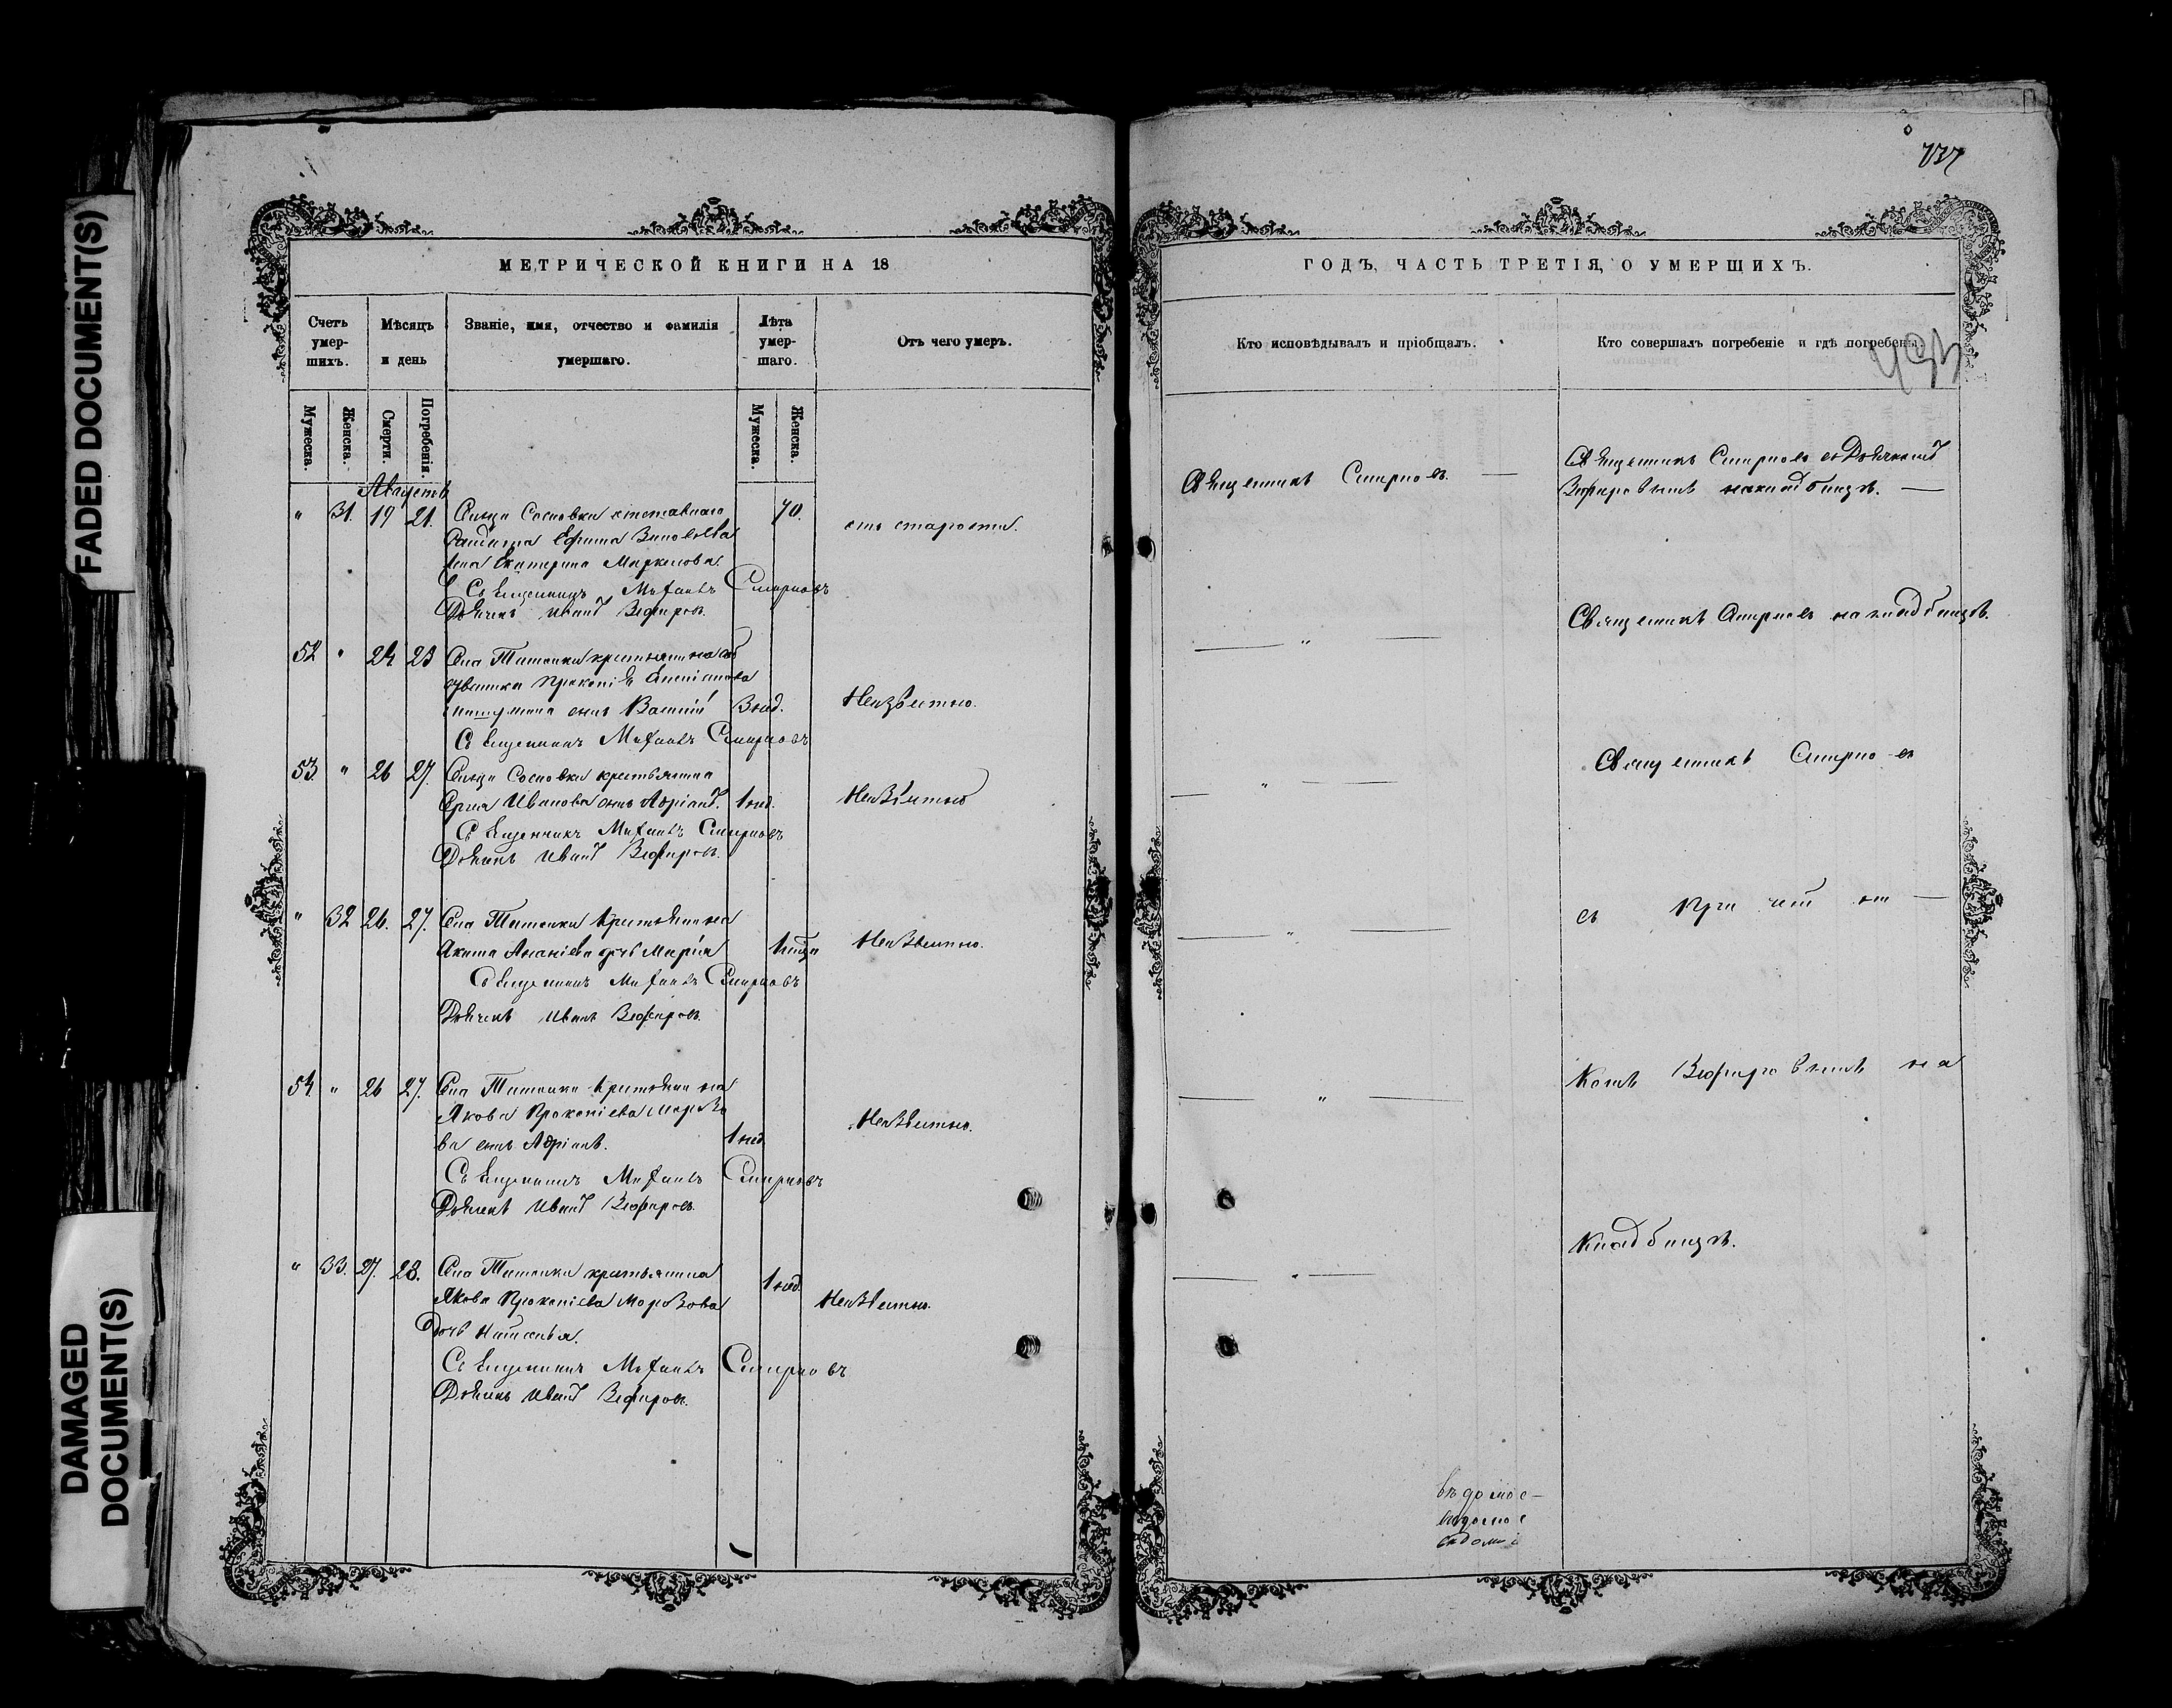 FADED DOCUMENT(S)
DAMAGED
DOCUMENT(S)
МЕТРИЧЕСКОЙ КНИГИ НА 18
Счетъ
умер-
шихъ.
Мѣсяцъ
и день
Званіе, имя, отчество и фамилія
умершаго.
Лѣта
умер-
шаго.
Отъ чего умеръ.
Мужеска.
Женска.
Смерти.
Погребенія.
Мужеска.
Женска.
Августъ
" 31. 19 21. Сельца Сосновки отставнаго 70. отъ старости.
Солдата Ефима Зиновьева
жена Екатерина Маркелова.
Священникъ Михаилъ Смирновъ
Дьячекъ Иванъ Зефировъ.
52 " 24 25 Села Титовки крестьянина
Прокопія
сынъ Василій 3 нед. Неизвѣстно.
Священникъ Михаилъ Смирновъ
53. " 26 27. Сельца Сосновки крестьянина
Иванова сынъ Адріанъ. 1 нед. Неизвѣстно
Священникъ Михаилъ Смирновъ
Дьячекъ Иванъ Зефировъ.
" 32 26. 27. Села Титовки крестьянина
Ананіева дочь Марія 1 года Неизвѣстно.
Священникъ Михаилъ Смирновъ
Дьячекъ Иванъ Зефировъ.
54. " 26 27. Села Титовки крестьянина
Якова Прокопіева Морозо
ва сынъ Адріанъ. 1 нед Неизвѣстно.
Священникъ Михаилъ Смирновъ
Дьячекъ Иванъ Зефировъ.
" 33. 27. 28. Села Титовки крестьянина 1 нед.
Якова Прокопіева Морозова Неизвѣстно.
дочь Наталья.
Священникъ Михаилъ Смирновъ
Дьячекъ Иванъ Зефировъ.
737
ГОДЪ, ЧАСТЬ ТРЕТІЯ, О УМЕРШИХЪ.
Кто исповѣдывалъ и пріобщалъ.
Кто совершалъ погребеніе и гдѣ погребены.
Священникъ Смирновъ. —
Священникъ Смирновъ съ Дьячкомъ
Зефировымъ на кладбищѣ. —
— " —
Священникъ Смирновъ на кладбищѣ.
— " —
Священникъ Смирновъ
— " —
съ причет ни —
— " —
комъ Зефировымъ на
— " —
кладбищѣ.